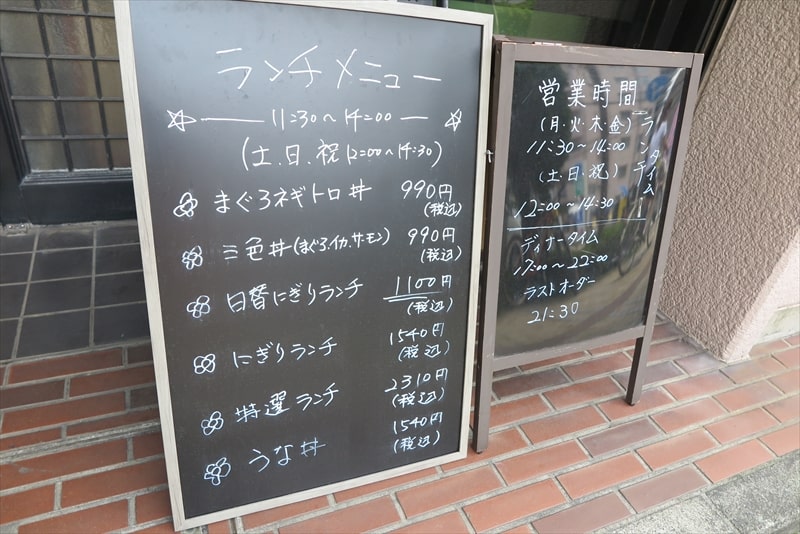 ランチメニュー
11:30〜14:00
(土.日.祝 12:00〜14:30)
まぐろネギトロ丼 990円
(税込)
三色丼(まぐろ.イカ.サーモン) 990円
(税込)
日替にぎりランチ 1100円
(税込)
にぎりランチ 1540円
(税込)
特選ランチ 2310円
(税込)
うな丼 1540円
(税込)
営業時間
(月・火・木・金)
11:30〜14:00
(土・日・祝)
12:00〜14:30
ランチタイム
ディナータイム
17:00〜22:00
ラストオーダー
21:30